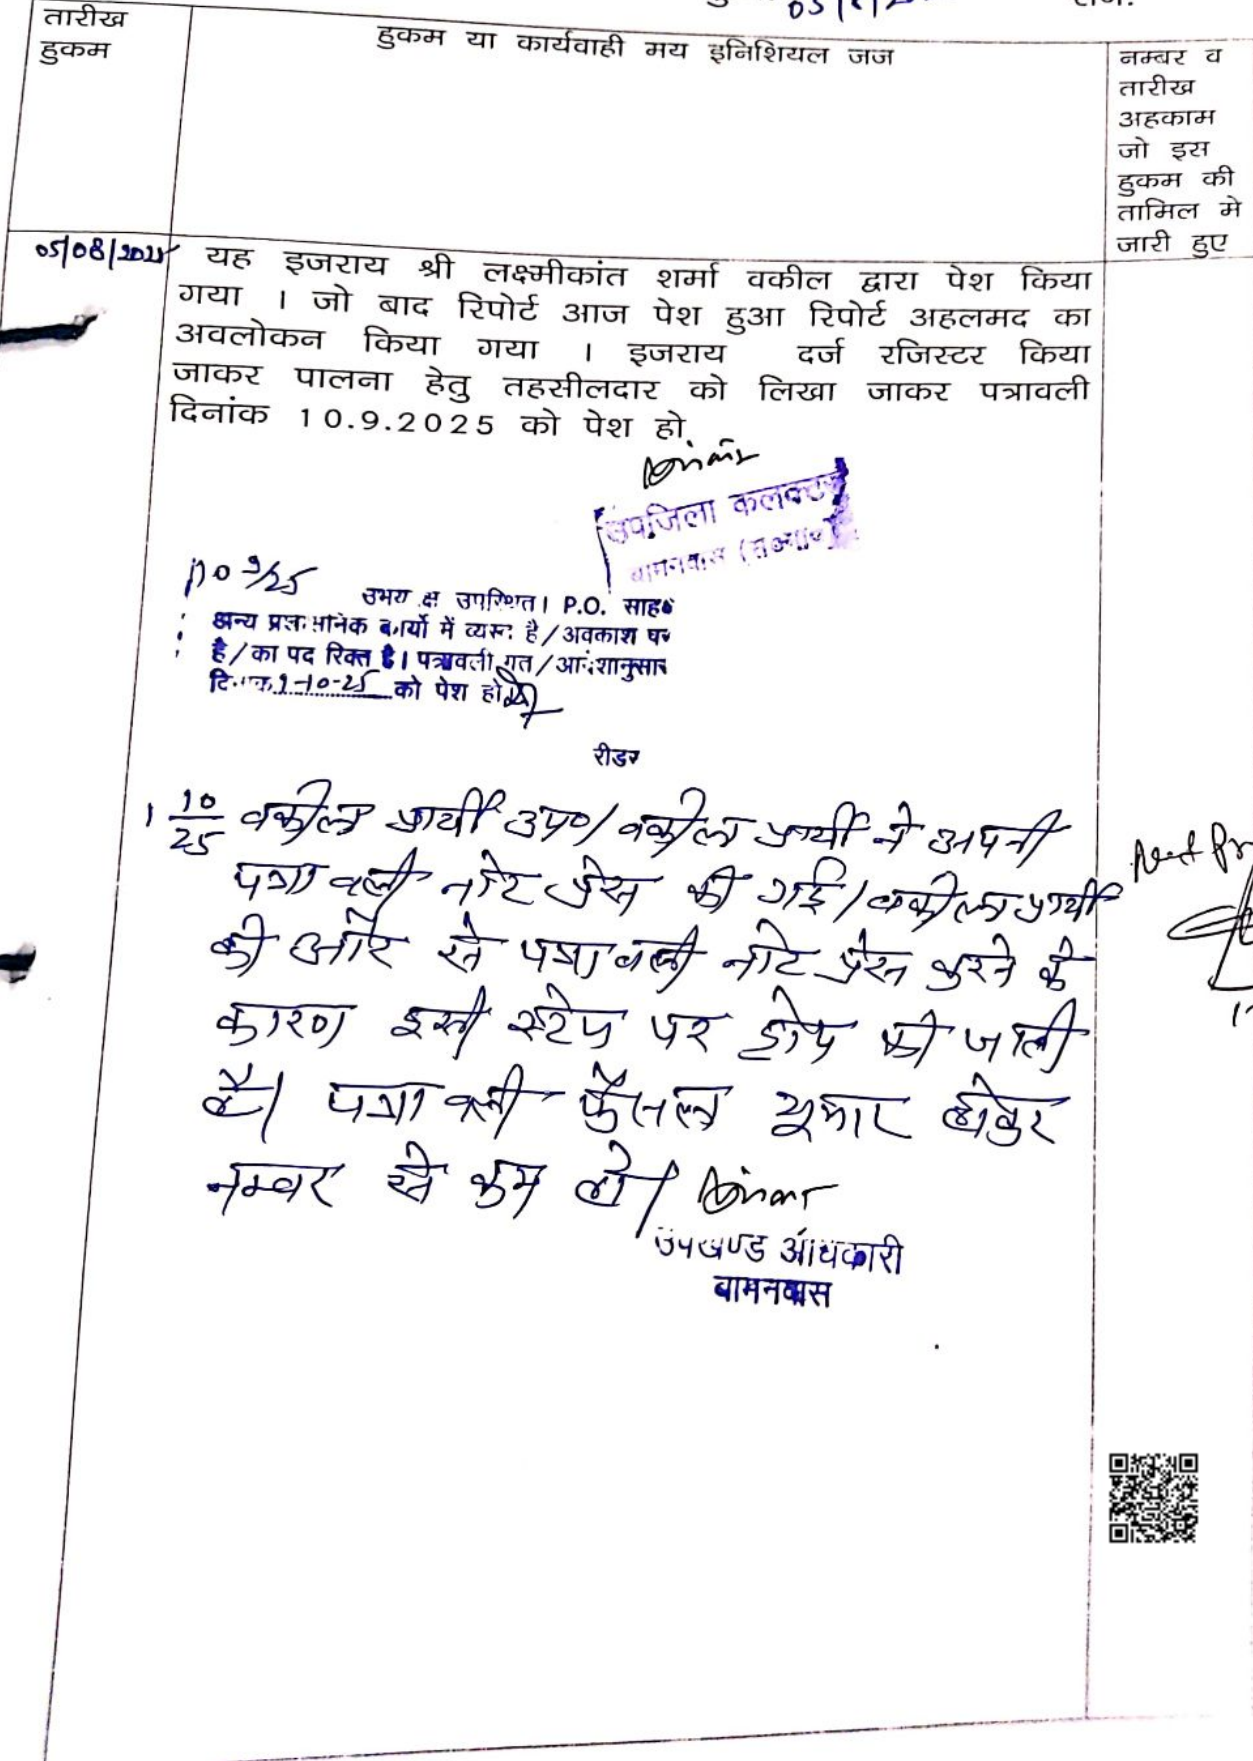 तारीख
हुकम
हुकम या कार्यवाही मय इनिशियल जज
नम्बर व
तारीख
अहकाम
जो इस
हुकम की
तामिल मे
जारी हुए
05/08/2025 यह इजराय श्री लक्ष्मीकांत शर्मा वकील द्वारा पेश किया
गया । जो बाद रिपोर्ट आज पेश हुआ रिपोर्ट अहलमद का
अवलोकन किया गया । इजराय दर्ज रजिस्टर किया
जाकर पालना हेतु तहसीलदार को लिखा जाकर पत्रावली
दिनांक 10.9.2025 को पेश हो
उपजिला कलक्टर
बामनवास
10 9/25
उभय क्ष उपस्थित। P.O. साहब
अन्य प्रशासनिक कार्यो में व्यस्त है/अवकाश पर
है/का पद रिक्त है। पत्रावली गत/आदेशानुसार
दिनांक 1-10-25 को पेश हो
रीडर
1 10/25 वकील प्रार्थी उप0/ वकील प्रार्थी ने अपनी
पत्रावली नोट प्रेस की गई/ वकील प्रार्थी
की ओर से पत्रावली नोट प्रेस करने के
कारण इसी स्टेप पर ड्रोप की जाती
है। पत्रावली फैसल शुमार होकर
नम्बर से कम हो।
उपखण्ड अधिकारी
बामनवास